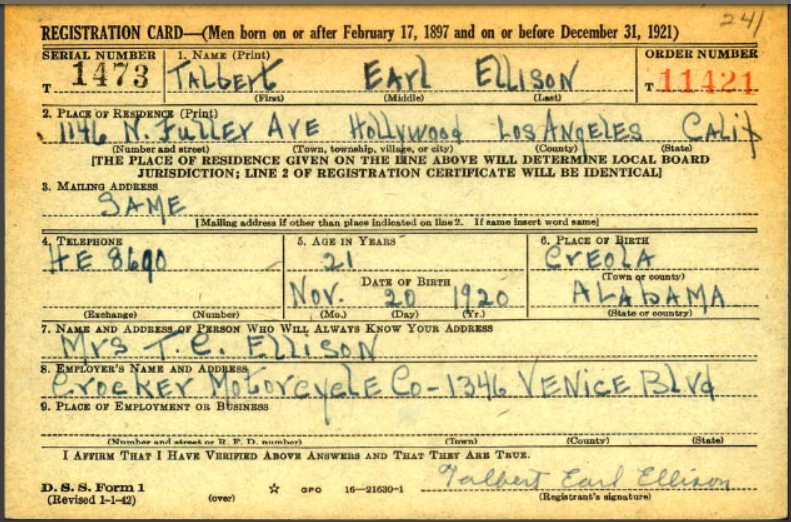 241
REGISTRATION CARD—(Men born on or after February 17, 1897 and on or before December 31, 1921)
SERIAL NUMBER 1. NAME (Print) ORDER NUMBER
T 1473 TALBERT EARL ELLISON T 11421
(First) (Middle) (Last)
2. PLACE OF RESIDENCE (Print)
1146 N. FULLER AVE HOLLYWOOD LOS ANGELES CALIF
(Number and street) (Town, township, village, or city) (County) (State)
[THE PLACE OF RESIDENCE GIVEN ON THE LINE ABOVE WILL DETERMINE LOCAL BOARD
JURISDICTION; LINE 2 OF REGISTRATION CERTIFICATE WILL BE IDENTICAL]
3. MAILING ADDRESS
SAME
[Mailing address if other than place indicated on line 2. If same insert word same]
4. TELEPHONE 5. AGE IN YEARS 6. PLACE OF BIRTH
HE 8690 21 CREOLA
DATE OF BIRTH (Town or county)
Nov. 20 1920 ALABAMA
(Exchange) (Number) (Mo.) (Day) (Yr.) (State or country)
7. NAME AND ADDRESS OF PERSON WHO WILL ALWAYS KNOW YOUR ADDRESS
MRS T. C. ELLISON
8. EMPLOYER'S NAME AND ADDRESS
CROCKER MOTORCYCLE CO - 1346 VENICE BLVD
9. PLACE OF EMPLOYMENT OR BUSINESS
(Number and street or R. F. D. number) (Town) (County) (State)
I AFFIRM THAT I HAVE VERIFIED ABOVE ANSWERS AND THAT THEY ARE TRUE.
Talbert Earl Ellison
D. S. S. Form 1
(Revised 1-1-42) (over) ☆ GPO 16—21630-1 (Registrant's signature)